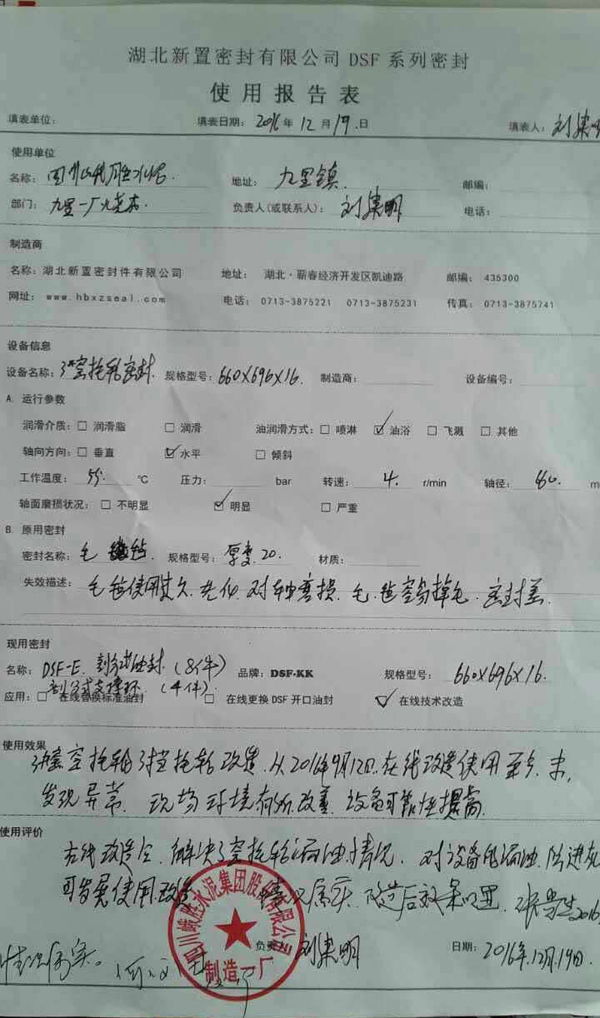 湖北新置密封有限公司 DSF 系列密封
使用报告表
填表单位: 填表日期: 2016年12月19日 填表人: 刘集明
使用单位
名称: 四川峨胜水泥 地址: 九里镇 邮编:
部门: 九里一厂 负责人(或联系人): 刘集明 电话:
制造商
名称: 湖北新置密封件有限公司 地址: 湖北·蕲春经济开发区凯迪路 邮编: 435300
网址: www.hbxzseal.com 电话: 0713-3875221 0713-3875231 传真: 0713-3875741
设备信息
设备名称: 3#窑托轮密封 规格型号: 660×696×16 制造商: 设备编号:
A. 运行参数
润滑介质: □ 润滑脂 □ 润滑 油润滑方式: □ 喷淋 ☑ 油浴 □ 飞溅 □ 其他
轴向方向: □ 垂直 ☑ 水平 □ 倾斜
工作温度: 55 ℃ 压力: bar 转速: 4 r/min 轴径: 660 m
轴面磨损状况: □ 不明显 ☑ 明显 □ 严重
B. 原用密封
密封名称: 毛毡 规格型号: 厚度20 材质:
失效描述: 毛毡使用过久.老化.对轴磨损.毛毡容易掉毛.密封差
现用密封
名称: DSF-E 剖分式油封(8件) 品牌: DSF-KK 规格型号: 660×696×16
剖分式支撑环(4件)
应用: □ 在线替换标准油封 □ 在线更换 DSF 开口油封 ☑ 在线技术改造
使用效果
窑托轮 3挡托轮改造.从2016年9月12日在线改造使用至今.未
发现异常.现场环境有所改善.设备可靠性提高
使用评价
在线改造后.解决了窑托轮漏油情况.对设备漏油.防进灰
可发展使用改造 情况属实.改造后效果明显. 2016
四川峨胜水泥集团股份有限公司
制造一厂
负责人: 刘集明 日期: 2016年12月19日
情况属实。